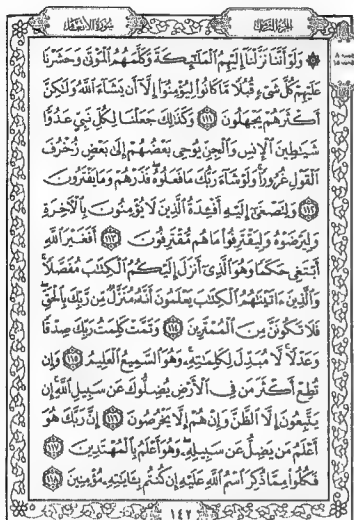 الجزء الثامن
سورة الأنعام
۞ وَلَوْ أَنَّنَا نَزَّلْنَا إِلَيْهِمُ الْمَلَٰٓئِكَةَ وَكَلَّمَهُمُ الْمَوْتَىٰ وَحَشَرْنَا
عَلَيْهِمْ كُلَّ شَىْءٍ قُبُلًا مَّا كَانُوا۟ لِيُؤْمِنُوٓا۟ إِلَّآ أَن يَشَآءَ اللَّهُ وَلَٰكِنَّ
أَكْثَرَهُمْ يَجْهَلُونَ ١١١ وَكَذَٰلِكَ جَعَلْنَا لِكُلِّ نَبِىٍّ عَدُوًّا
شَيَٰطِينَ الْإِنسِ وَالْجِنِّ يُوحِى بَعْضُهُمْ إِلَىٰ بَعْضٍ زُخْرُفَ
الْقَوْلِ غُرُورًا وَلَوْ شَآءَ رَبُّكَ مَا فَعَلُوهُ فَذَرْهُمْ وَمَا يَفْتَرُونَ
١١٢ وَلِتَصْغَىٰٓ إِلَيْهِ أَفْـِٔدَةُ الَّذِينَ لَا يُؤْمِنُونَ بِالْأَخِرَةِ
وَلِيَرْضَوْهُ وَلِيَقْتَرِفُوا۟ مَا هُم مُّقْتَرِفُونَ ١١٣ أَفَغَيْرَ اللَّهِ
أَبْتَغِى حَكَمًا وَهُوَ الَّذِىٓ أَنزَلَ إِلَيْكُمُ الْكِتَٰبَ مُفَصَّلًا
وَالَّذِينَ ءَاتَيْنَٰهُمُ الْكِتَٰبَ يَعْلَمُونَ أَنَّهُۥ مُنَزَّلٌ مِّن رَّبِّكَ بِالْحَقِّ
فَلَا تَكُونَنَّ مِنَ الْمُمْتَرِينَ ١١٤ وَتَمَّتْ كَلِمَتُ رَبِّكَ صِدْقًا
وَعَدْلًا لَّا مُبَدِّلَ لِكَلِمَٰتِهِۦ وَهُوَ السَّمِيعُ الْعَلِيمُ ١١٥ وَإِن
تُطِعْ أَكْثَرَ مَن فِى الْأَرْضِ يُضِلُّوكَ عَن سَبِيلِ اللَّهِ إِن
يَتَّبِعُونَ إِلَّا الظَّنَّ وَإِنْ هُمْ إِلَّا يَخْرُصُونَ ١١٦ إِنَّ رَبَّكَ هُوَ
أَعْلَمُ مَن يَضِلُّ عَن سَبِيلِهِۦ وَهُوَ أَعْلَمُ بِالْمُهْتَدِينَ ١١٧
فَكُلُوا۟ مِمَّا ذُكِرَ اسْمُ اللَّهِ عَلَيْهِ إِن كُنتُم بِـَٔايَٰتِهِۦ مُؤْمِنِينَ ١١٨
١٤٢